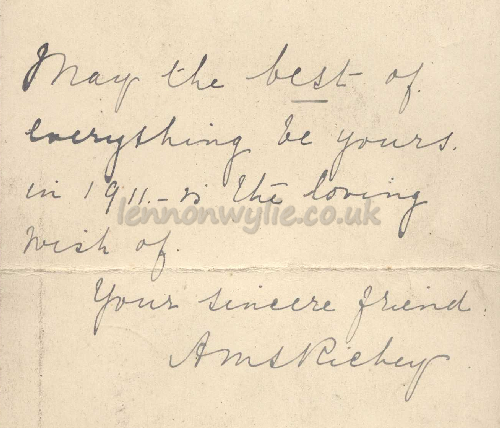 May the best of
everything be yours.
in 1911. - is the loving
lennonwylie.co.uk
wish of.
Your sincere friend.
AMSRichey